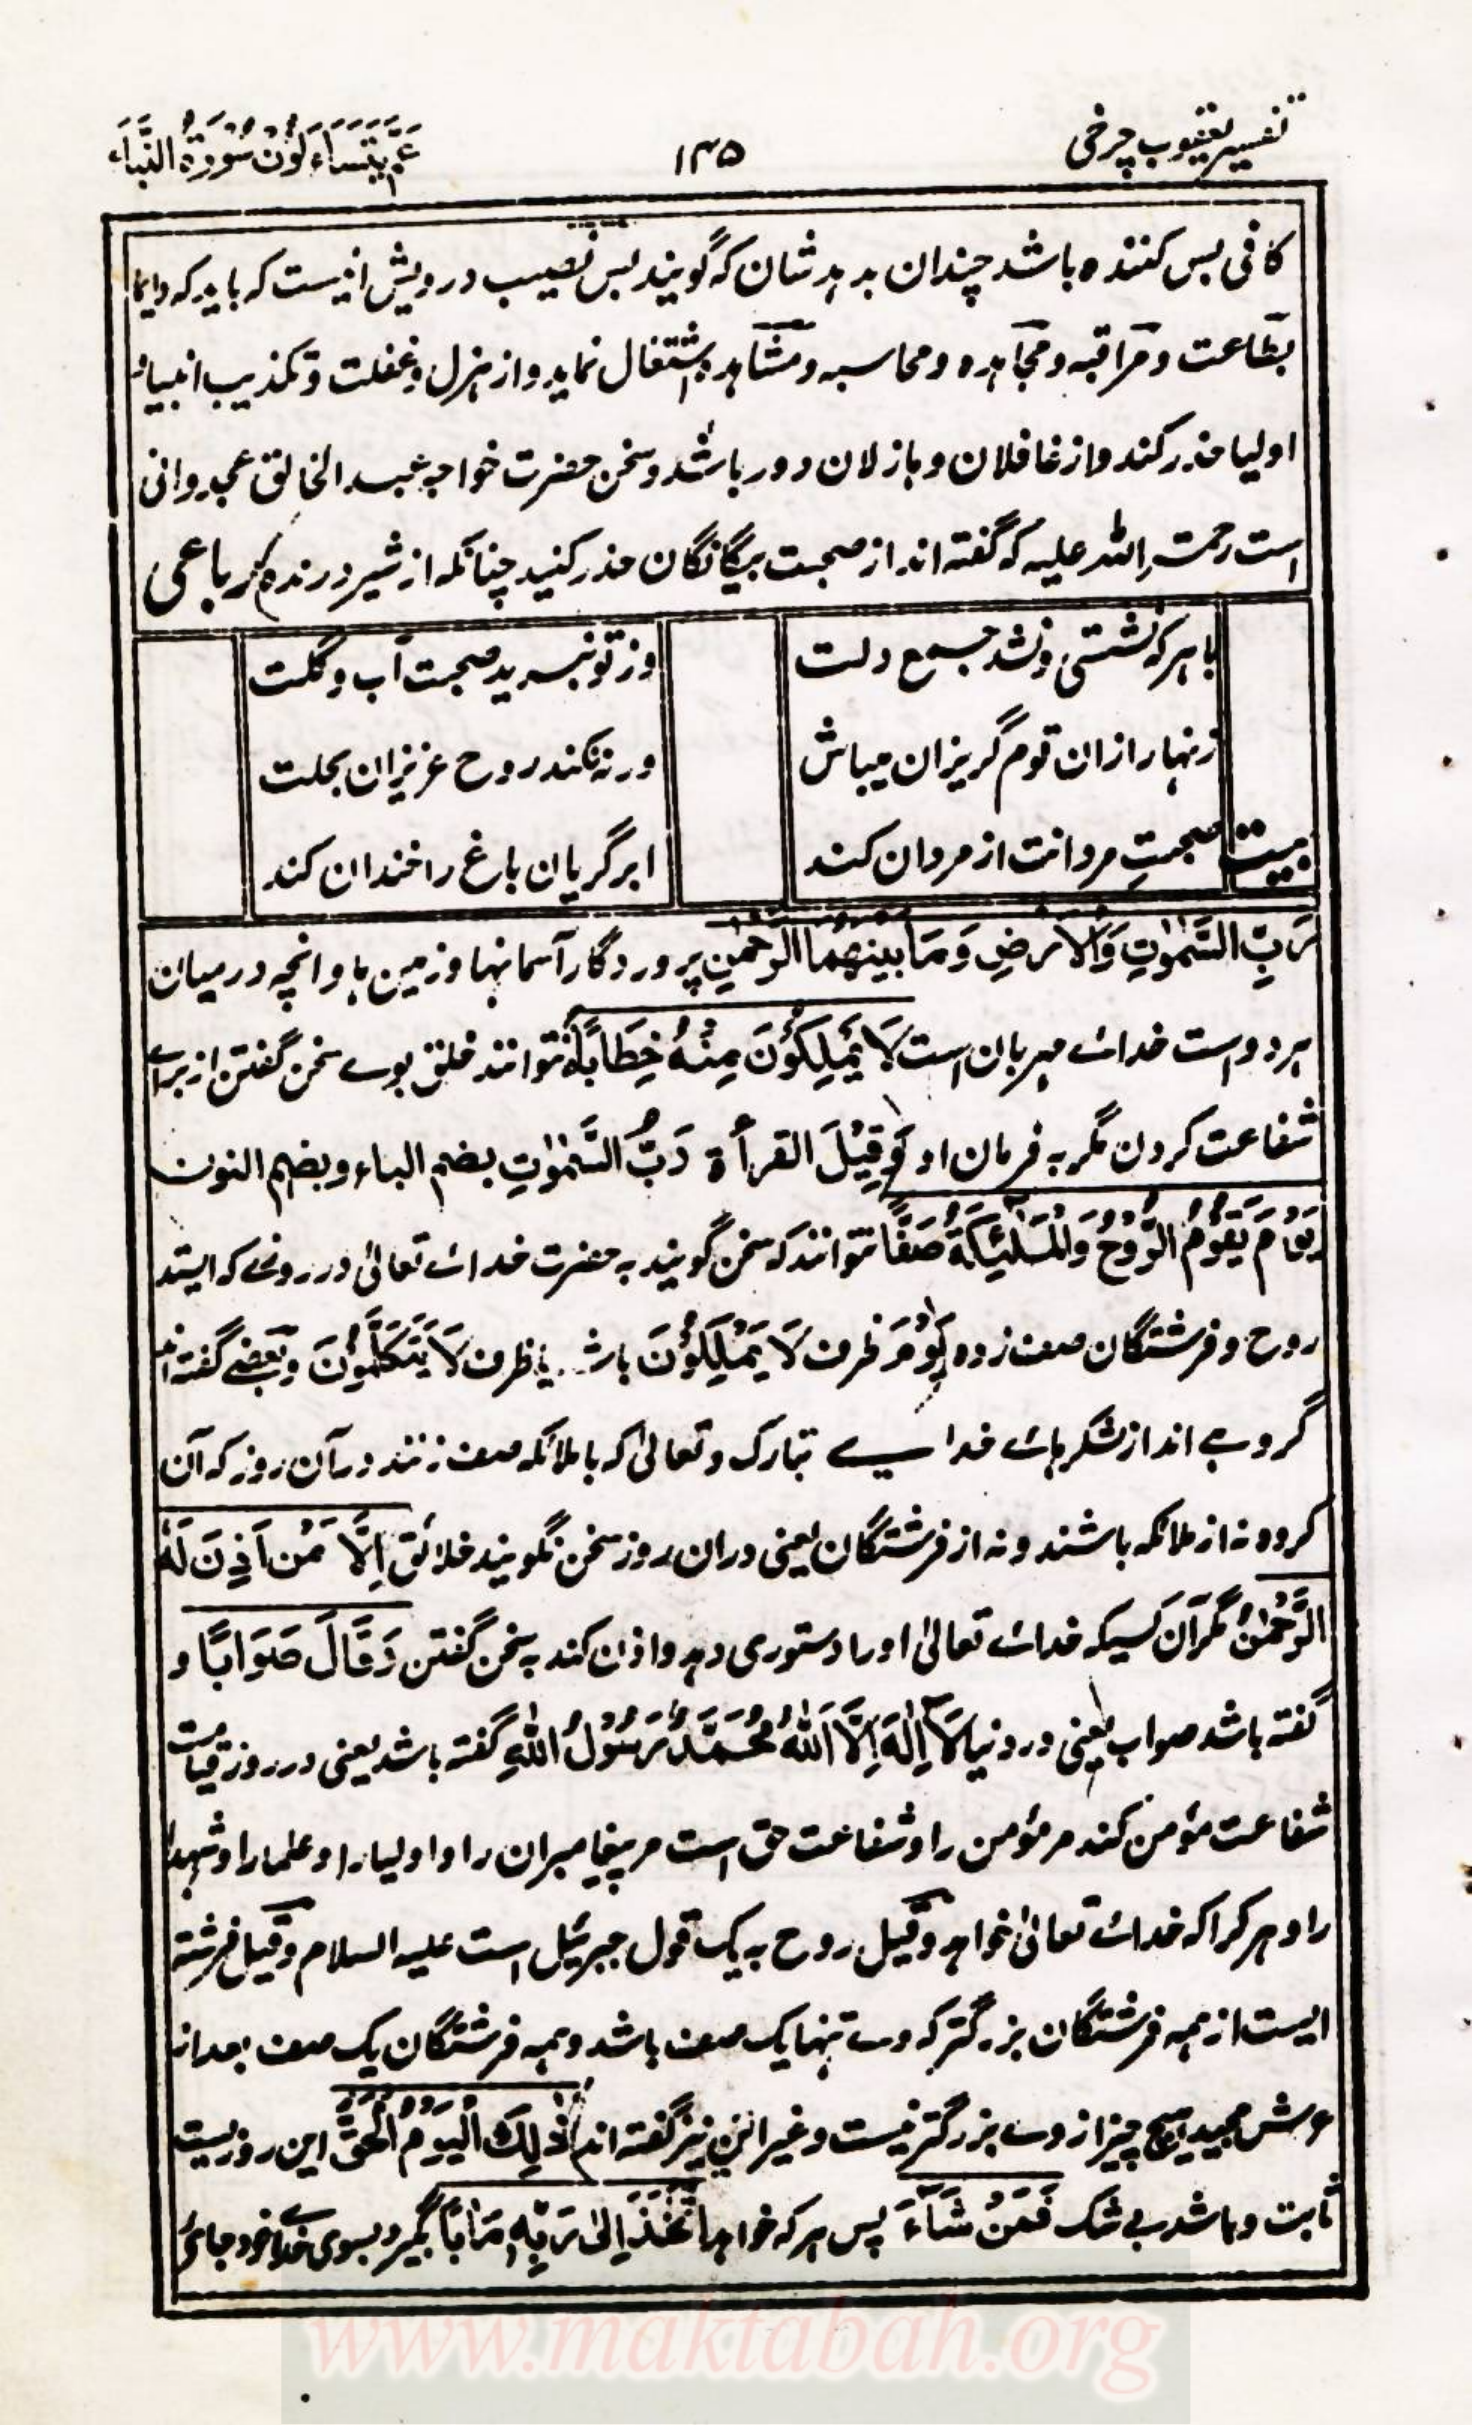 تفسیر یعقوب چرخی
۱۴۵
عَمَّ یَتَسَاءَلُوْنَ سُوْرَۃُ النَّبَاء
کافی بس کنندہ باشد چندان بدہد شان کہ گویند بس نصیب درویش انیست کہ باید کہ دایما
بطاعت و مراقبہ و مجاہدہ و محاسبہ و مشاہدہ اشتغال نماید و از ہزل و غفلت و تکذیب انبیا و
اولیا حذر کند و از غافلان و ہازلان دور باشد و سخن حضرت خواجہ عبد الخالق غجدوانی
است رحمۃ اللہ علیہ کہ گفتہ اند از صحبت بیگانگان حذر کنید چنانکہ از شیر درندہ رباعی
با ہر کہ نشستی و نشد جمع دلت وز تو نبرید صحبت آب و گلت
زنہار ازان قوم گریزان میباش ورنہ نکند روح عزیزان بحلت
بیت صحبتِ مردانت از مردان کند ابر گریان باغ را خندان کند
رَبِّ السَّمٰوٰتِ وَالْاَرْضِ وَمَا بَیْنَهُمَا الرَّحْمٰنِ پروردگار آسمانہا و زمین ہا و انچہ درمیان
ہر دو است خداے مہربان است لَا یَمْلِکُوْنَ مِنْهُ خِطَابًا نتوانند خلق بوے سخن گفتن از براے
شفاعت کردن مگر بہ فرمان او وَقِیْلَ القرأۃ رَبُّ السَّمٰوٰتِ بضم الباء و بضم النون
یَوْمَ یَقُوْمُ الرُّوْحُ وَالْمَلٰٓئِکَةُ صَفًّا نتوانند کہ سخن گویند بہ حضرت خداے تعالیٰ در روزے کہ ایستد
روح و فرشتگان صف زدہ یَوْمَ ظرف لَا یَمْلِکُوْنَ باشد یا ظرف لَا یَتَکَلَّمُوْنَ و بعضے گفتہ اند
گروہے اند از لشکرہاے خداے تبارک و تعالیٰ کہ با ملائکہ صف زنند در آن روز کہ آن
گروہ نہ از ملائکہ باشند و نہ از فرشتگان یعنی دران روز سخن نگویند خلائق اِلَّا مَنْ اَذِنَ لَهُ
الرَّحْمٰنُ مگر آن کسیکہ خداے تعالیٰ او را دستوری دہد و اذن کند بہ سخن گفتن وَقَالَ صَوَابًا و
گفتہ باشد صواب یعنی در دنیا لَا اِلٰهَ اِلَّا اللّٰهُ مُحَمَّدٌ رَّسُوْلُ اللّٰهِ گفتہ باشد یعنی در روز قیامت
شفاعت مؤمن کند مر مؤمن را و شفاعت حق است مر پیغامبران را و اولیا را و علما را و شہدا
را و ہر کرا کہ خداے تعالیٰ خواہد و قیل روح بہ یک قول جبرئیل است علیہ السلام و قیل فرشتہ
ایست از ہمہ فرشتگان بزرگتر کہ وے تنہا یک صف باشد و ہمہ فرشتگان یک صف بعد از
عرش مجید ہیچ چیز از وے بزرگتر نیست و غیر این نیز گفتہ اند ذٰلِکَ الْیَوْمُ الْحَقُّ این روزیست
ثابت و باشد بے شک فَمَنْ شَآءَ پس ہر کہ خواہد اتَّخَذَ اِلٰی رَبِّهٖ مَاٰبًا گیرد بسوی خداے خود جاے
www.maktabah.org